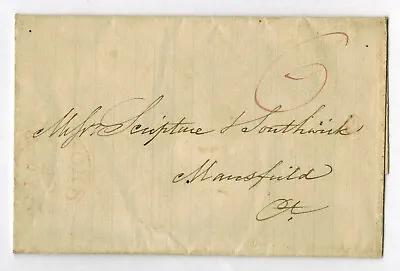 6
Messrs Scripture & Southwick
Mansfield
Ct.